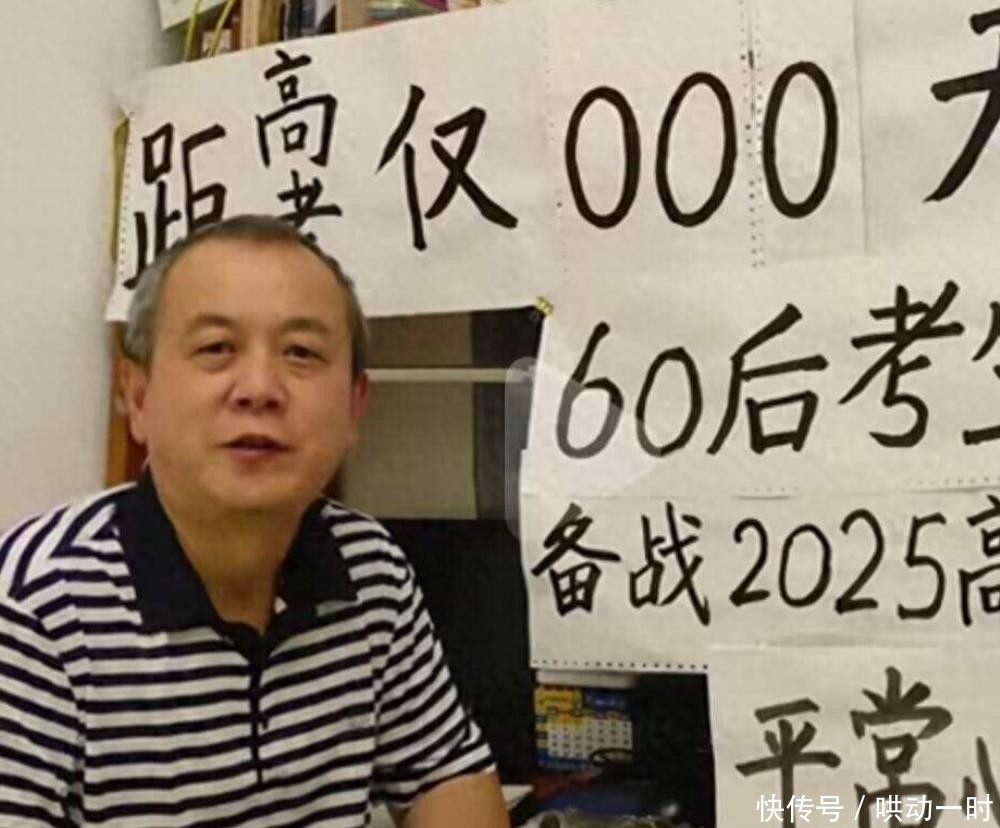 距高考仅000天
60后考生
备战2025高
平常心
快传号 / 哄动一时